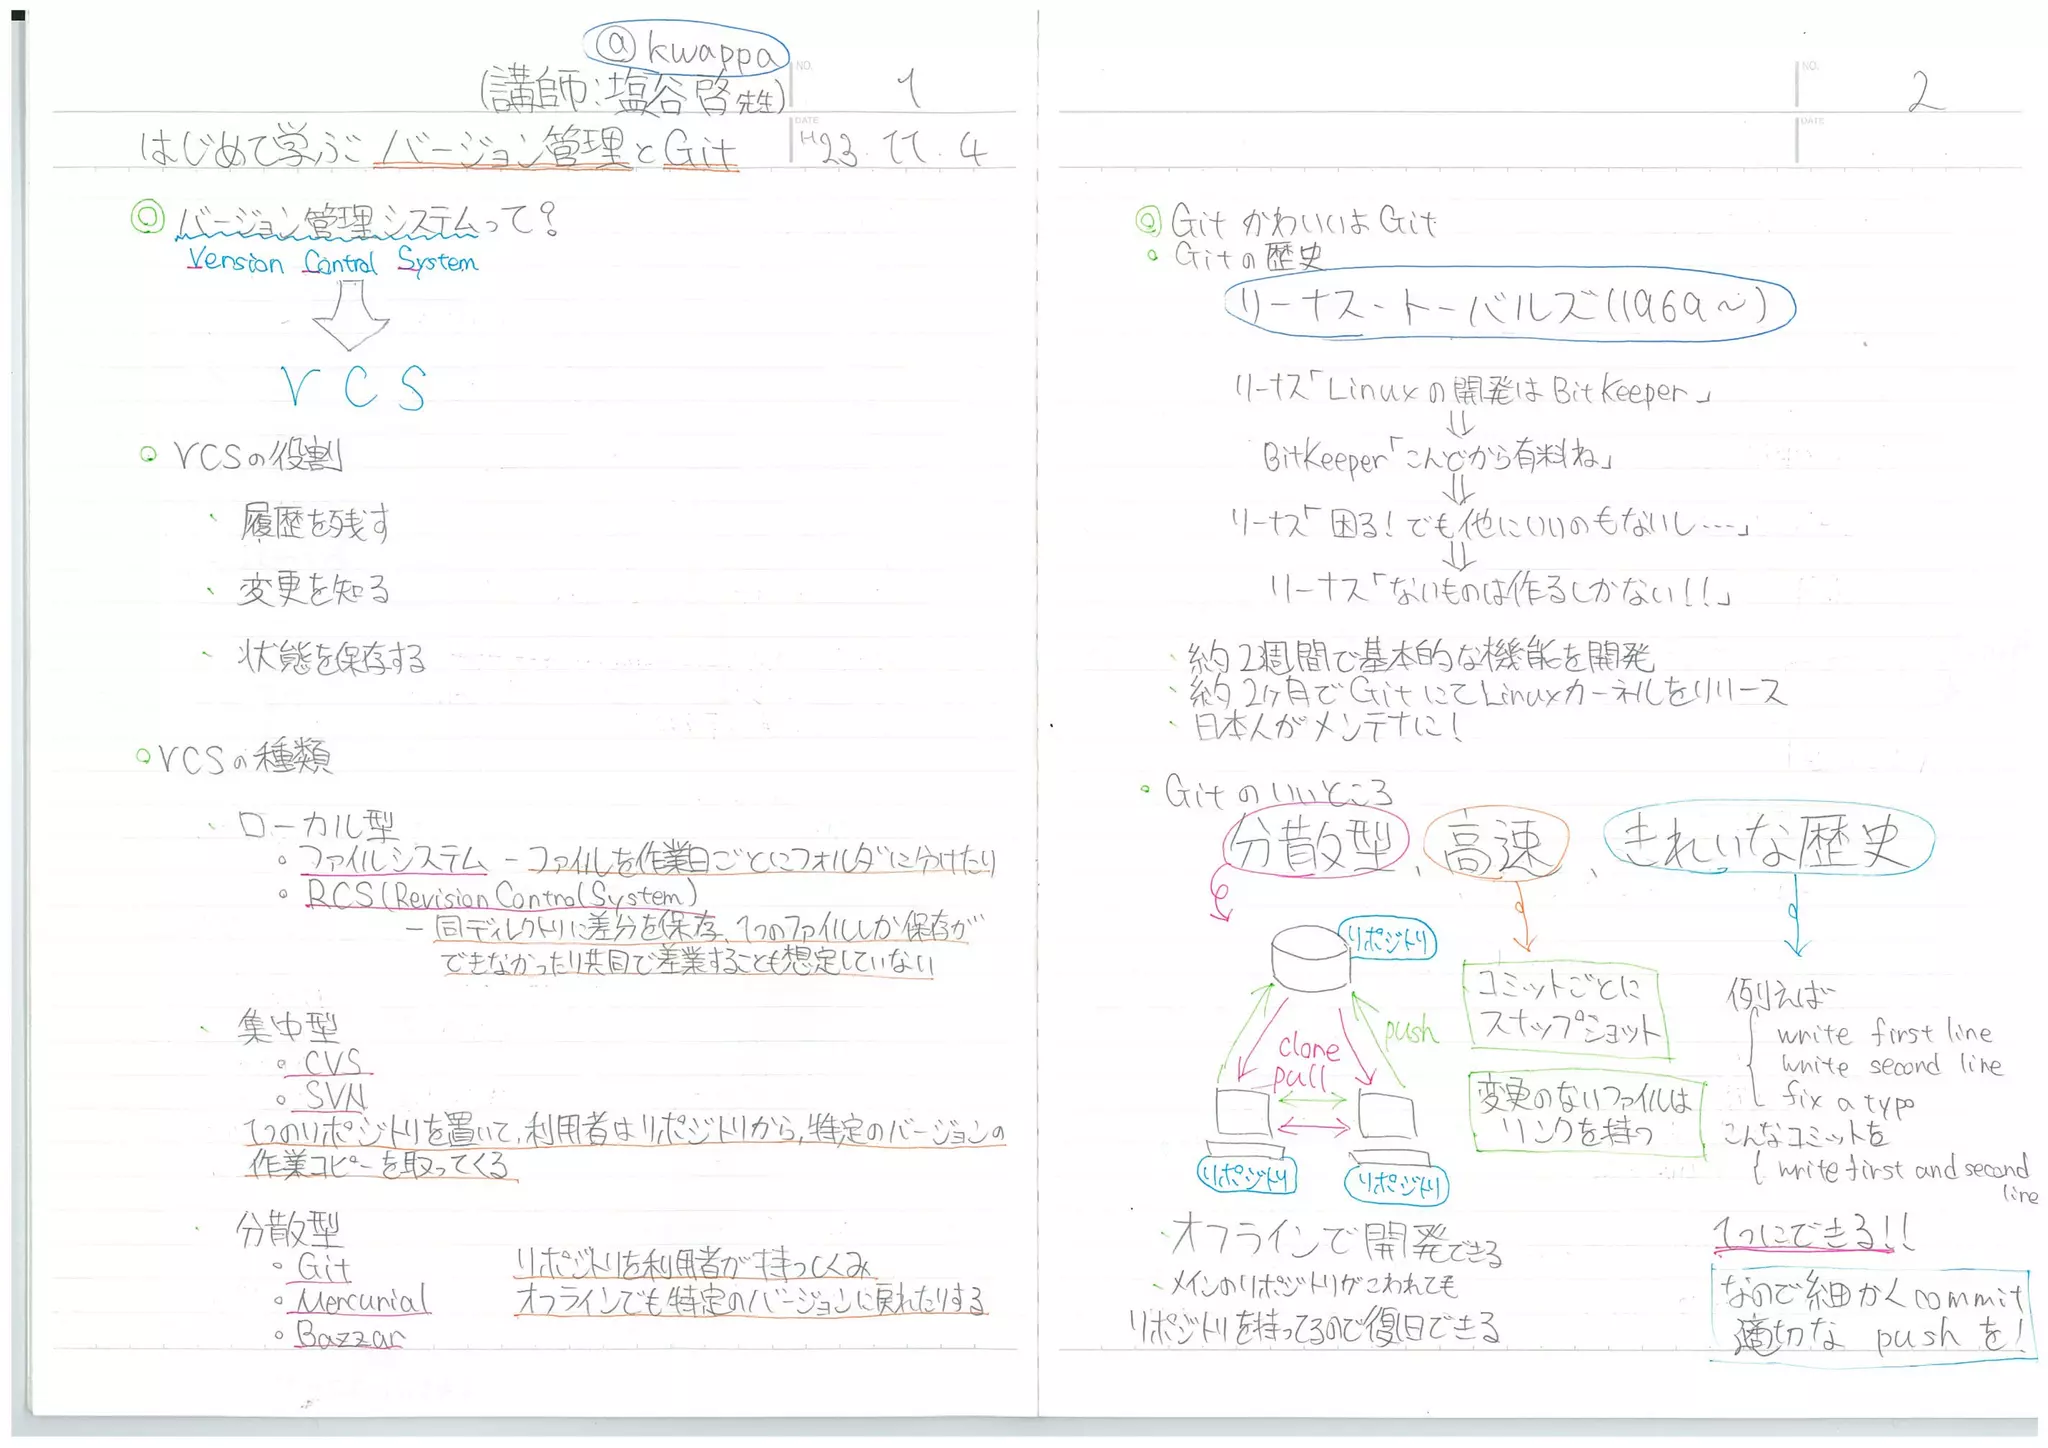 @kwappa
(講師:塩谷 啓先生)
NO.
1
はじめて学ぶ バージョン管理とGit
DATE
H23.11.4
◎ バージョン管理システムって?
Version Control System
VCS
○ VCSの役割
、履歴を残す
、変更を知る
、状態を保存する
○ VCSの種類
、ローカル型
○ ファイルシステム - ファイルを作業日ごとにフォルダに分けたり
○ RCS(Revision Control System)
- 同ディレクトリに差分を保存、1つのファイルしか保存が
できなかったり共同で差業することも想定していない
、集中型
○ CVS
○ SVN
1つのリポジトリを置いて、利用者はリポジトリから、特定のバージョンの
作業コピーを取ってくる
、分散型
○ Git リポジトリを利用者が持つしくみ
○ Mercurial オフラインでも特定のバージョンに戻れたりする
○ Bazzar
NO.
2
DATE
◎ Git かわいいよ Git
○ Gitの歴史
リーナス・トーバルズ(1969〜)
リーナス「Linuxの開発はBitKeeper」
⇓
BitKeeper「こんどから有料ね」
⇓
リーナス「困る!でも他にいいのもないし…」
⇓
リーナス「ないものは作るしかない!!」
、約2週間で基本的な機能を開発
、約2ヶ月でGitにてLinuxカーネルをリリース
、日本人がメンテナに!
○ Gitのいいところ
分散型、高速、きれいな歴史
リポジトリ
push
clone
pull
リポジトリ
リポジトリ
コミットごとに
スナップショット
変更のないファイルは
リンクを持つ
例えば
write first line
write second line
fix a typo
こんなコミットを
write first and second
line
1つにできる!!
、オフラインで開発できる
、メインのリポジトリがこわれても
リポジトリを持ってるので復旧できる
なので細かくcommit
適切な push を!